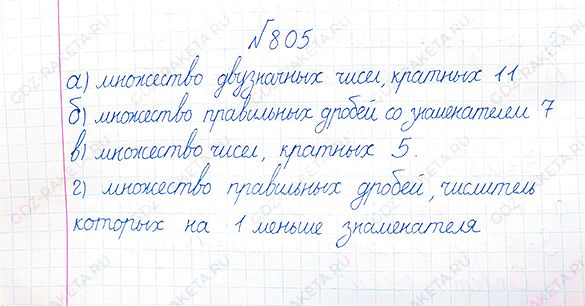 №805
а) множество двузначных чисел, кратных 11
б) множество правильных дробей со знаменателем 7
в) множество чисел, кратных 5.
г) множество правильных дробей, числитель
которых на 1 меньше знаменателя